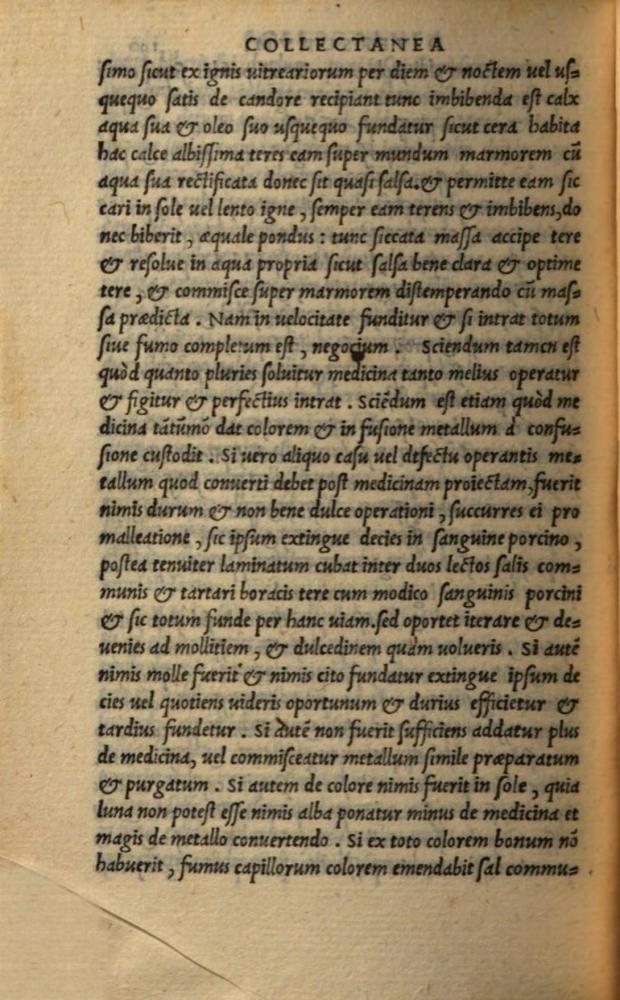 COLLECTANEA
ſimo ſicut ex ignis uitreariorum per diem & noctem uel uſ=
quequo ſatis de candore recipiant tunc imbibenda eſt calx
aqua ſua & oleo ſuo uſquequo fundatur ſicut cera habita
hac calce albiſſima teres eam ſuper mundum marmorem cū
aqua ſua rectificata donec ſit quaſi ſalſa.& permitte eam ſic
cari in ſole uel lento igne , ſemper eam terens & imbibens,do
nec biberit , æquale pondus : tunc ſiccata maſſa accipe tere
& reſolue in aqua propria ſicut ſalſa bene clara & optime
tere , & commiſce ſuper marmorem diſtemperando cū maſ=
ſa prædicta . Nam in uelocitate funditur & ſi intrat totum
ſiue fumo completum eſt , negocium . Sciendum tamen eſt
quòd quanto pluries ſoluitur medicina tanto melius operatur
& figitur & perfectius intrat . Sciēdum eſt etiam quòd me
dicina tātūmō dat colorem & in fuſione metallum à confu=
ſione cuſtodit . Si uero aliquo caſu uel defectu operantis me=
tallum quod conuerti debet poſt medicinam proiectam,fuerit
nimis durum & non bene dulce operationi , ſuccurres ei pro
malleatione , ſic ipſum extingue decies in ſanguine porcino ,
poſtea tenuiter laminatum cubat inter duos lectos ſalis com=
munis & tartari boracis tere cum modico ſanguinis porcini
& ſic totum funde per hanc uiam.ſed oportet iterare & de=
uenies ad mollitiem , & dulcedinem quàm uolueris . Si autē
nimis molle fuerit & nimis cito fundatur extingue ipſum de
cies uel quotiens uideris oportunum & durius efficietur &
tardius fundetur . Si autē non fuerit ſufficiens addatur plus
de medicina, uel commiſceatur metallum ſimile præparatum
& purgatum . Si autem de colore nimis fuerit in ſole , quia
luna non poteſt eſſe nimis alba ponatur minus de medicina et
magis de metallo conuertendo . Si ex toto colorem bonum nō
habuerit , fumus capillorum colorem emendabit ſal commu=